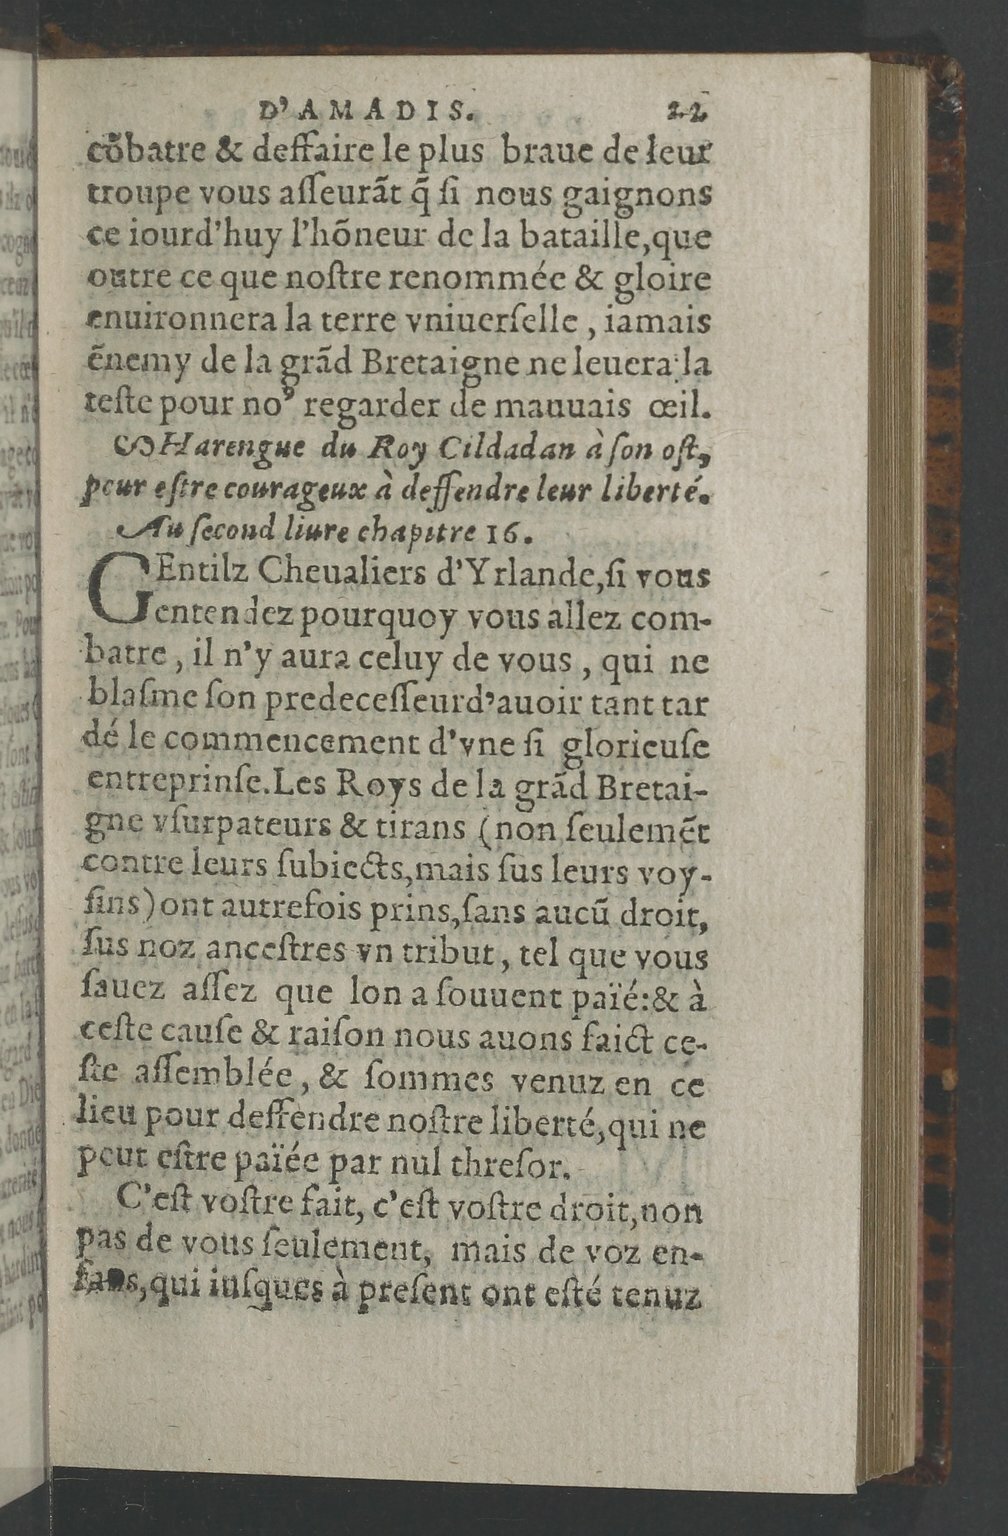 D'AMADIS. 22
cõbatre & deffaire le plus braue de leur
troupe vous aſſeurãt q̃ ſi nous gaignons
ce iourd'huy l'hõneur de la bataille,que
outre ce que noſtre renommée & gloire
enuironnera la terre vniuerſelle , iamais
ẽnemy de la grãd Bretaigne ne leuera la
teſte pour noꝰ regarder de mauuais œil.
Harengue du Roy Cildadan à ſon oſt,
pour eſtre courageux à deffendre leur liberté.
Au ſecond liure chapitre 16.
GEntilz Cheualiers d'Yrlande,ſi vous
entendez pourquoy vous allez com-
batre , il n'y aura celuy de vous , qui ne
blaſme ſon predeceſſeurd'auoir tant tar
dé le commencement d'vne ſi glorieuſe
entreprinſe.Les Roys de la grãd Bretai-
gne vſurpateurs & tirans (non ſeulemẽt
contre leurs ſubiects,mais ſus leurs voy-
ſins)ont autrefois prins,ſans aucũ droit,
ſus noz anceſtres vn tribut, tel que vous
ſauez aſſez que lon a ſouuent païé:& à
ceſte cauſe & raiſon nous auons faict ce-
ſte aſſemblée , & ſommes venuz en ce
lieu pour deffendre noſtre liberté,qui ne
peut eſtre païée par nul threſor.
C'eſt voſtre fait, c'eſt voſtre droit,non
pas de vous ſeulement, mais de voz en-
fans,qui iuſques à preſent ont eſté tenuz